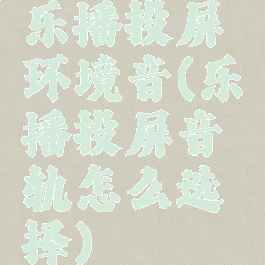 乐播投屏
环境音(乐
播投屏音
轨怎么选
择)